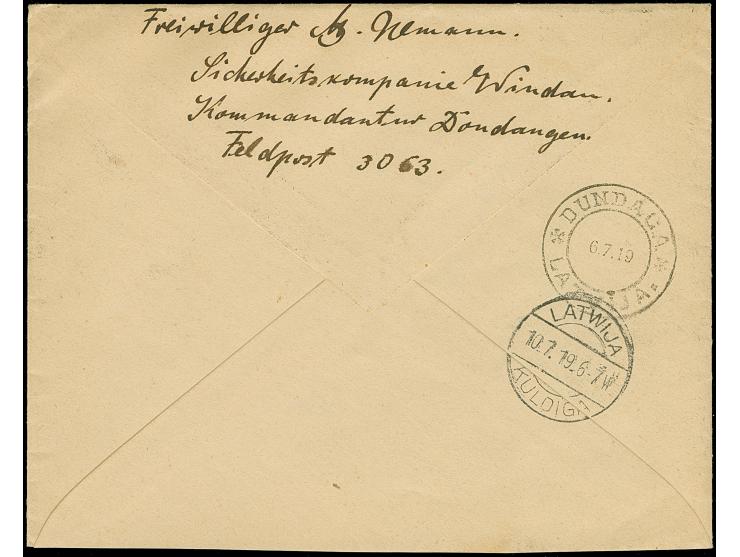 Freiwilliger M. Nemann.
Sicherheitskompanie Windau.
Kommandantur Dondangen.
Feldpost 3063.
* DUNDAGA *
6.7.19
LATWIJA
LATWIJA
10.7.19.6-7
KULDIGA